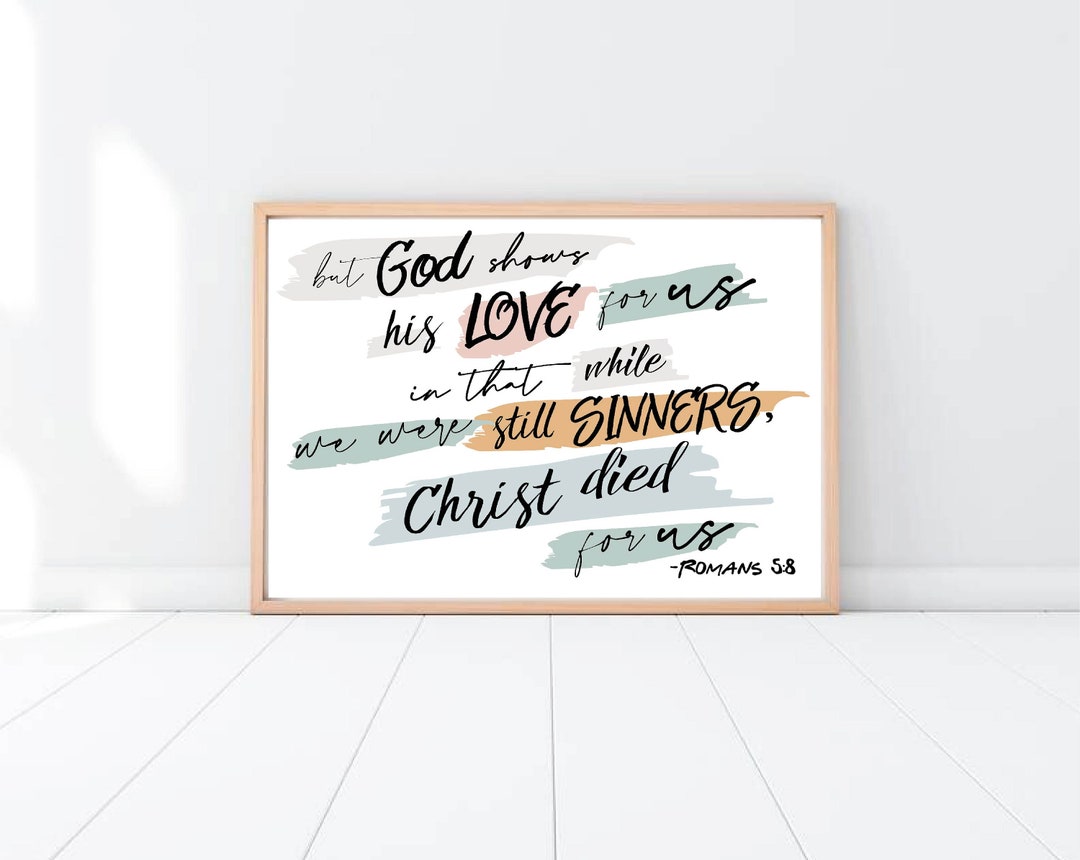 but God shows
his LOVE for us
in that while
we were still SINNERS,
Christ died
for us
-ROMANS 5:8